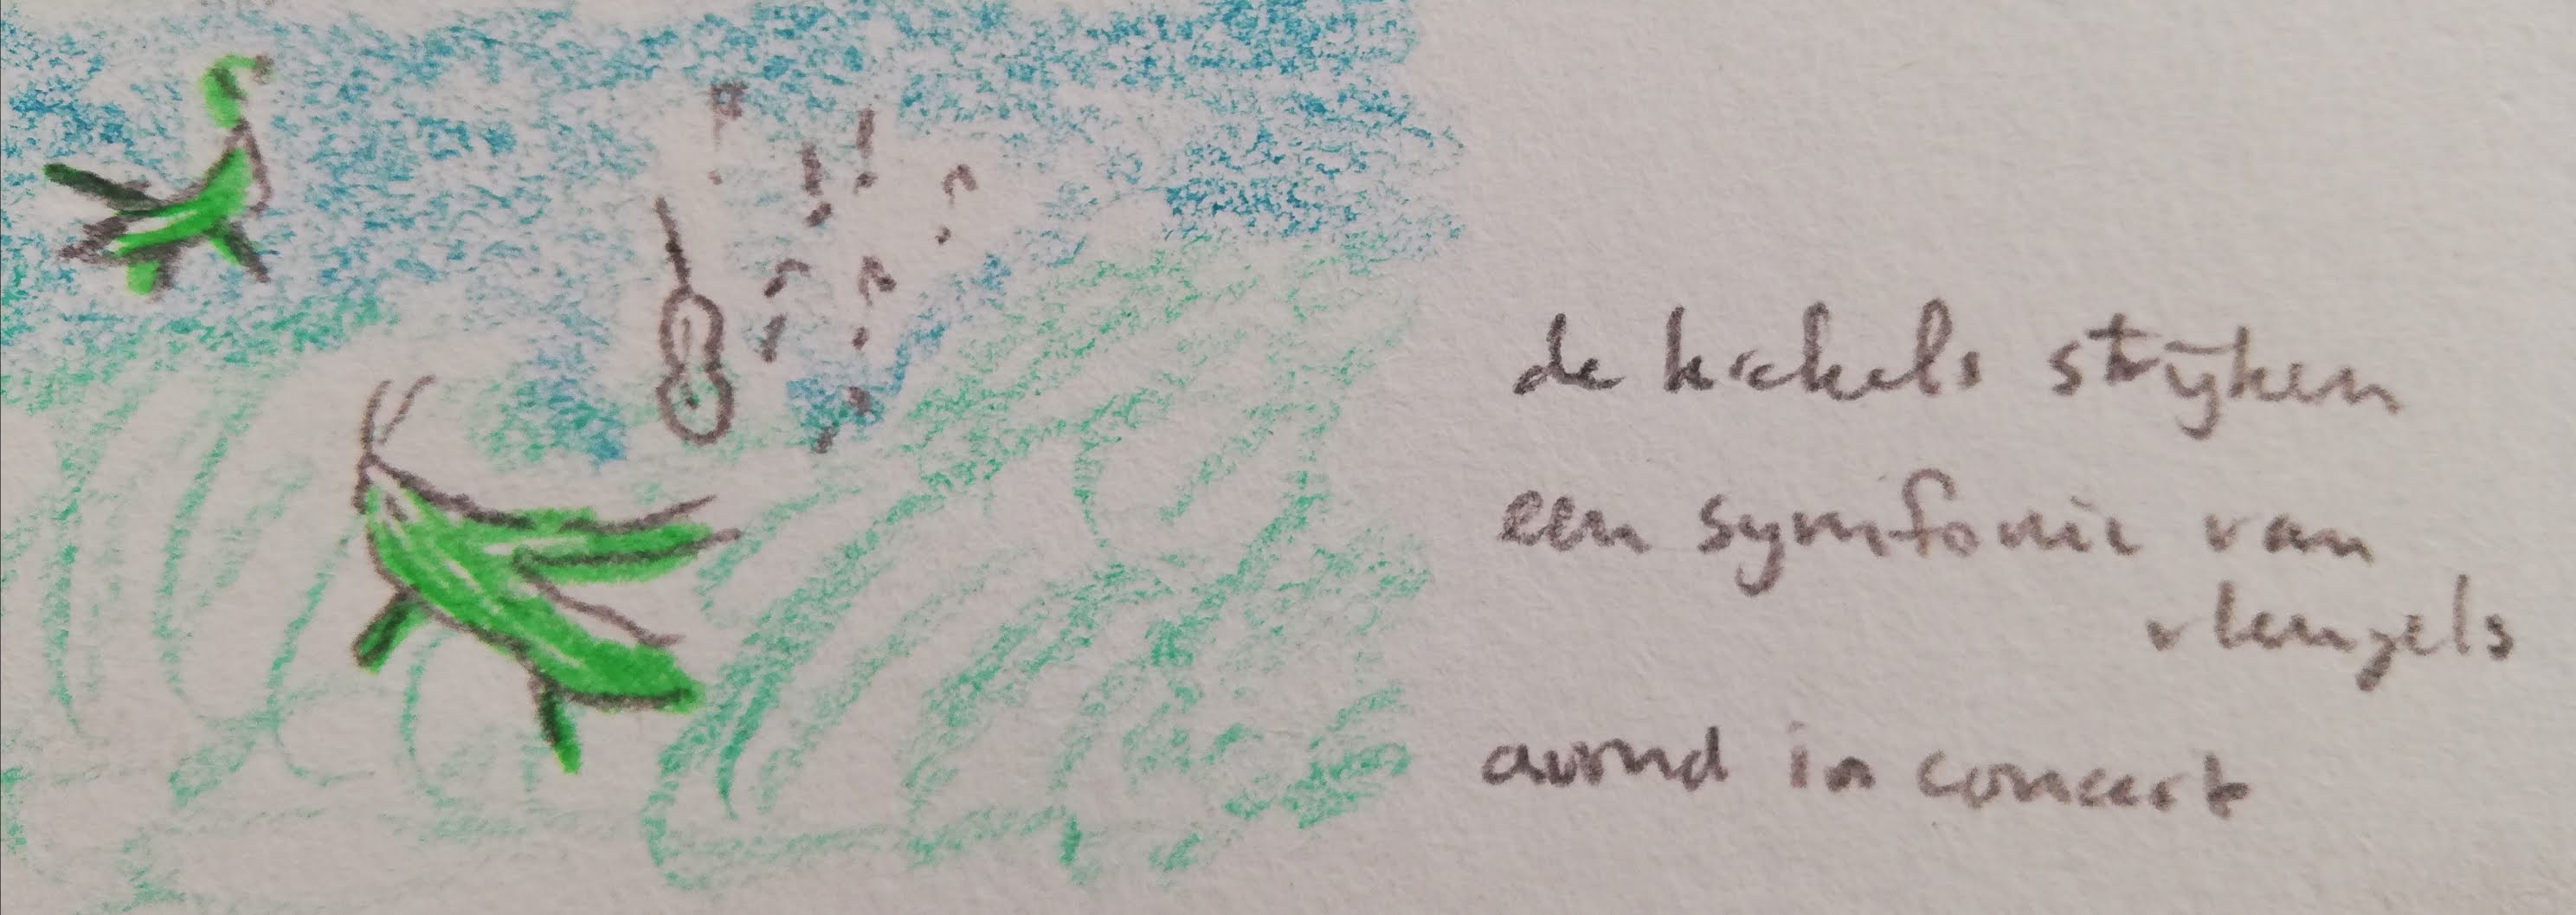 de krekels strijken
een symfonie van
vleugels
avond in concert